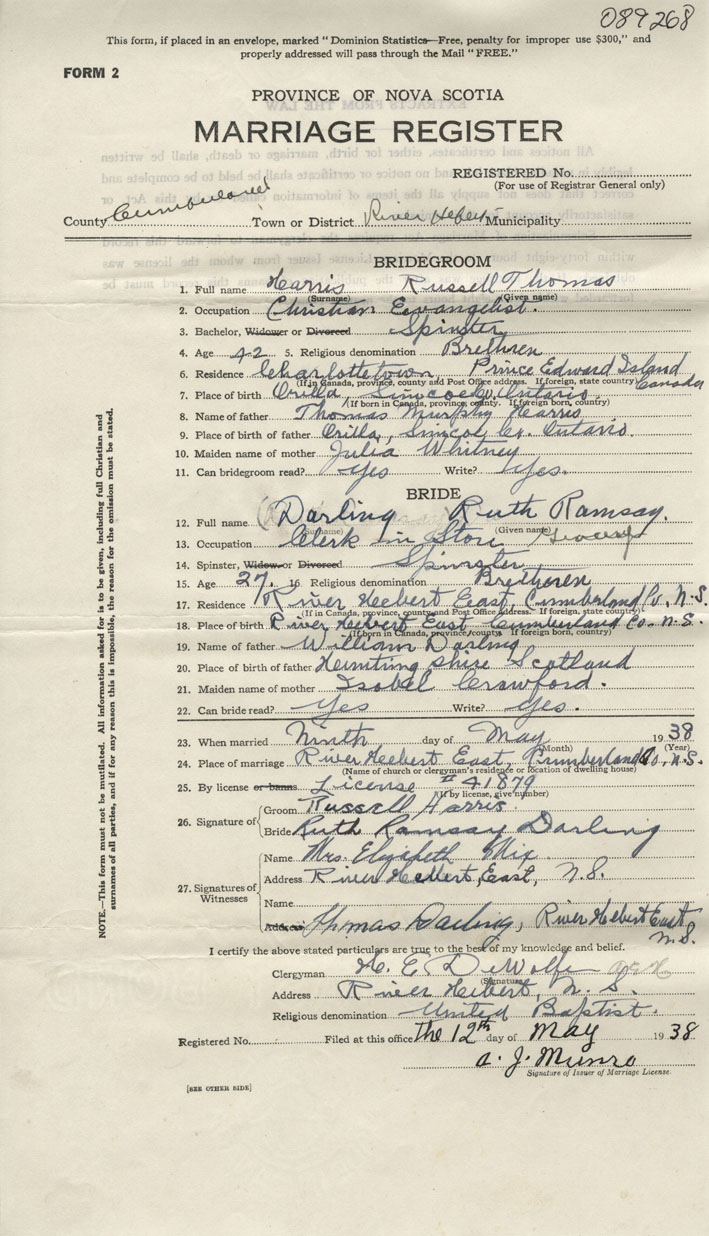 089268
This form, if placed in an envelope, marked "Dominion Statistics—Free, penalty for improper use $300," and
properly addressed will pass through the Mail "FREE."
FORM 2
PROVINCE OF NOVA SCOTIA
MARRIAGE REGISTER
REGISTERED No.
(For use of Registrar General only)
County Cumberland Town or District River Hebert Municipality
BRIDEGROOM
1. Full name Harris Russell Thomas
(Surname) (Given name)
2. Occupation Christian Evangelist.
3. Bachelor, Widower or Divorced Spinster
4. Age 42 5. Religious denomination Brethren
6. Residence Charlottetown, Prince Edward Island Canada
(If in Canada, province, county and Post Office address. If foreign, state country)
7. Place of birth Orilla, Simcoe Co. Ontario.
(If born in Canada, province, county. If foreign born, country)
8. Name of father Thomas Murphy Harris
9. Place of father Orilla, Simcoe Co. Ontario.
10. Maiden name of mother Julia Whitney
11. Can bridegroom read? Yes Write? Yes.
BRIDE
12. Full name Darling Ruth Ramsay.
(Surname) (Given name)
13. Occupation Clerk in Store
14. Spinster, Widow or Divorced Spinster
15. Age 27. 16. Religious denomination Brethren
17. Residence River Heebert East, Cumberland Co., N.S.
(If in Canada, province, county and Post Office address. If foreign, state country)
18. Place of birth River Heebert East Cumberland Co. N.S.
(If born in Canada, province/county. If foreign born, country)
19. Name of father William Darling
20. Place of birth of father Scotland
21. Maiden name of mother Isobel Crawford.
22. Can bride read? Yes Write? Yes.
23. When married Ninth day of May 1938
(Month) (Year)
24. Place of marriage River Heebert East, Cumberland Co., N.S.
(Name of church or clergyman's residence or location of dwelling house)
25. By license or banns License # 41879
(If by license, give number)
26. Signature of
Groom Russell Harris.
Bride Ruth Ramsay Darling
27. Signatures of Witnesses
Name Mrs. Elizabeth Mix.
Address River Heebert, East, N.S.
Name
Address Thomas Darling, River Hebert East N.S.
I certify the above stated particulars are true to the best of my knowledge and belief.
Clergyman H. E. DeWolfe
(Signature)
Address River Hebert, N. S.
Religious denomination United Baptist.
Registered No. Filed at this office The 12th day of May 1938
A. J. Munro
Signature of Issuer of Marriage License.
[SEE OTHER SIDE]
NOTE.—This form must not be mutilated. All information asked for is to be given, including full Christian and
surnames of all parties, and if for any reason this is impossible, the reason for the omission must be stated.